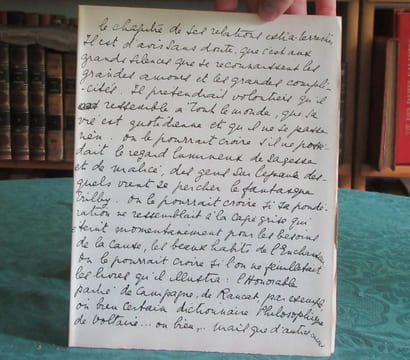 le chapitre de ses relations extra-terrestres,
Il est d'avis sans doute, que c'est aux
grands silences que se reconnaissent les
grandes amours et les grandes compli-
cités. Il prétendrait volontiers qu'il
ressemble à Tout le monde, que sa
vie est quotidienne et qu'il ne se passe
rien. On le pourrait croire s'il ne possé-
dait le regard lumineux de sagesse
et de malice, des gens sur l'épaule des-
quels vient se percher le fantasque
Trilby. On le pourrait croire si sa pondé-
ration ne ressemblait à la cape grise qui
éteint momentanément pour les besoins
de la cause, les beaux habits de l'Enchanteur
On le pourrait croire si l'on ne feuilletait
les livres qu'il illustra : l'Honorable
partie de Campagne, de Raucat, par exemple
où bien certain dictionnaire Philosophique
de Voltaire... ou bien,.. mais que d'autres